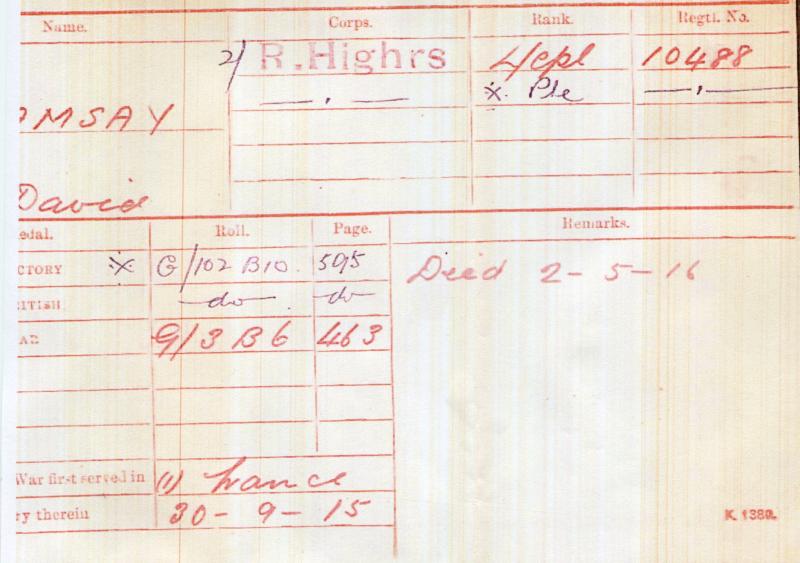 Name. Corps. Rank. Regtl. No.
2/ R. Highrs L/cpl 10488
— , — ※. Pte — , —
OMSAY
David
edal. Roll. Page. Remarks.
CTORY ※ G/102 B10. 595 Died 2-5-16
ITISH —do— —do—
AR G/3 B6 463
War first served in (1) France
ry therein 30-9-15
K. 1380.